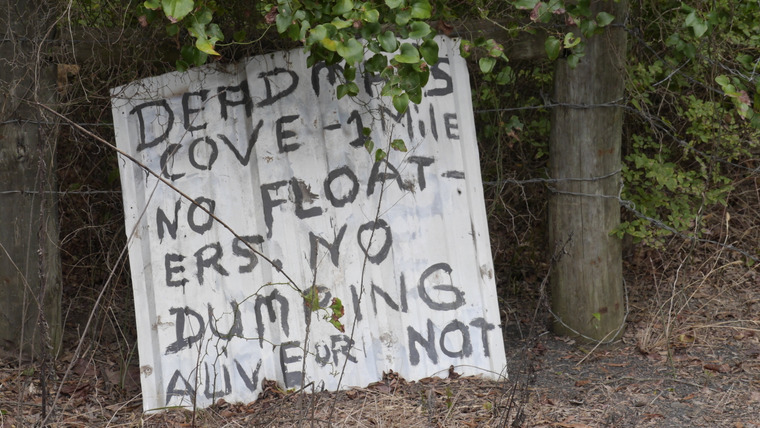 DEADMANS
COVE -1 MilE
NO FLOAT-
ERS. NO
DUMPING
ALIVE OR NOT